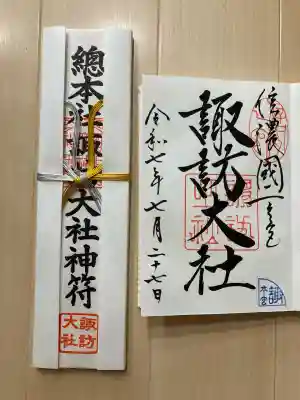 總本社諏訪大社神符
諏訪
大社
信濃國一之宮
諏訪大社
令和七年七月二十七日
諏訪
大社
本宮